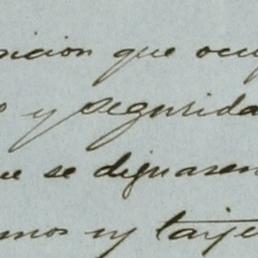 sicion que ocu
o y seguridad
ue se dignasen
mos y tarje